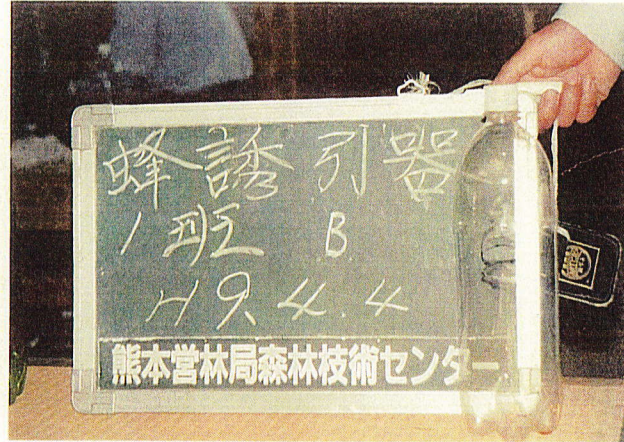 蜂誘引器
1班 B
H9.4.4
熊本営林局森林技術センター